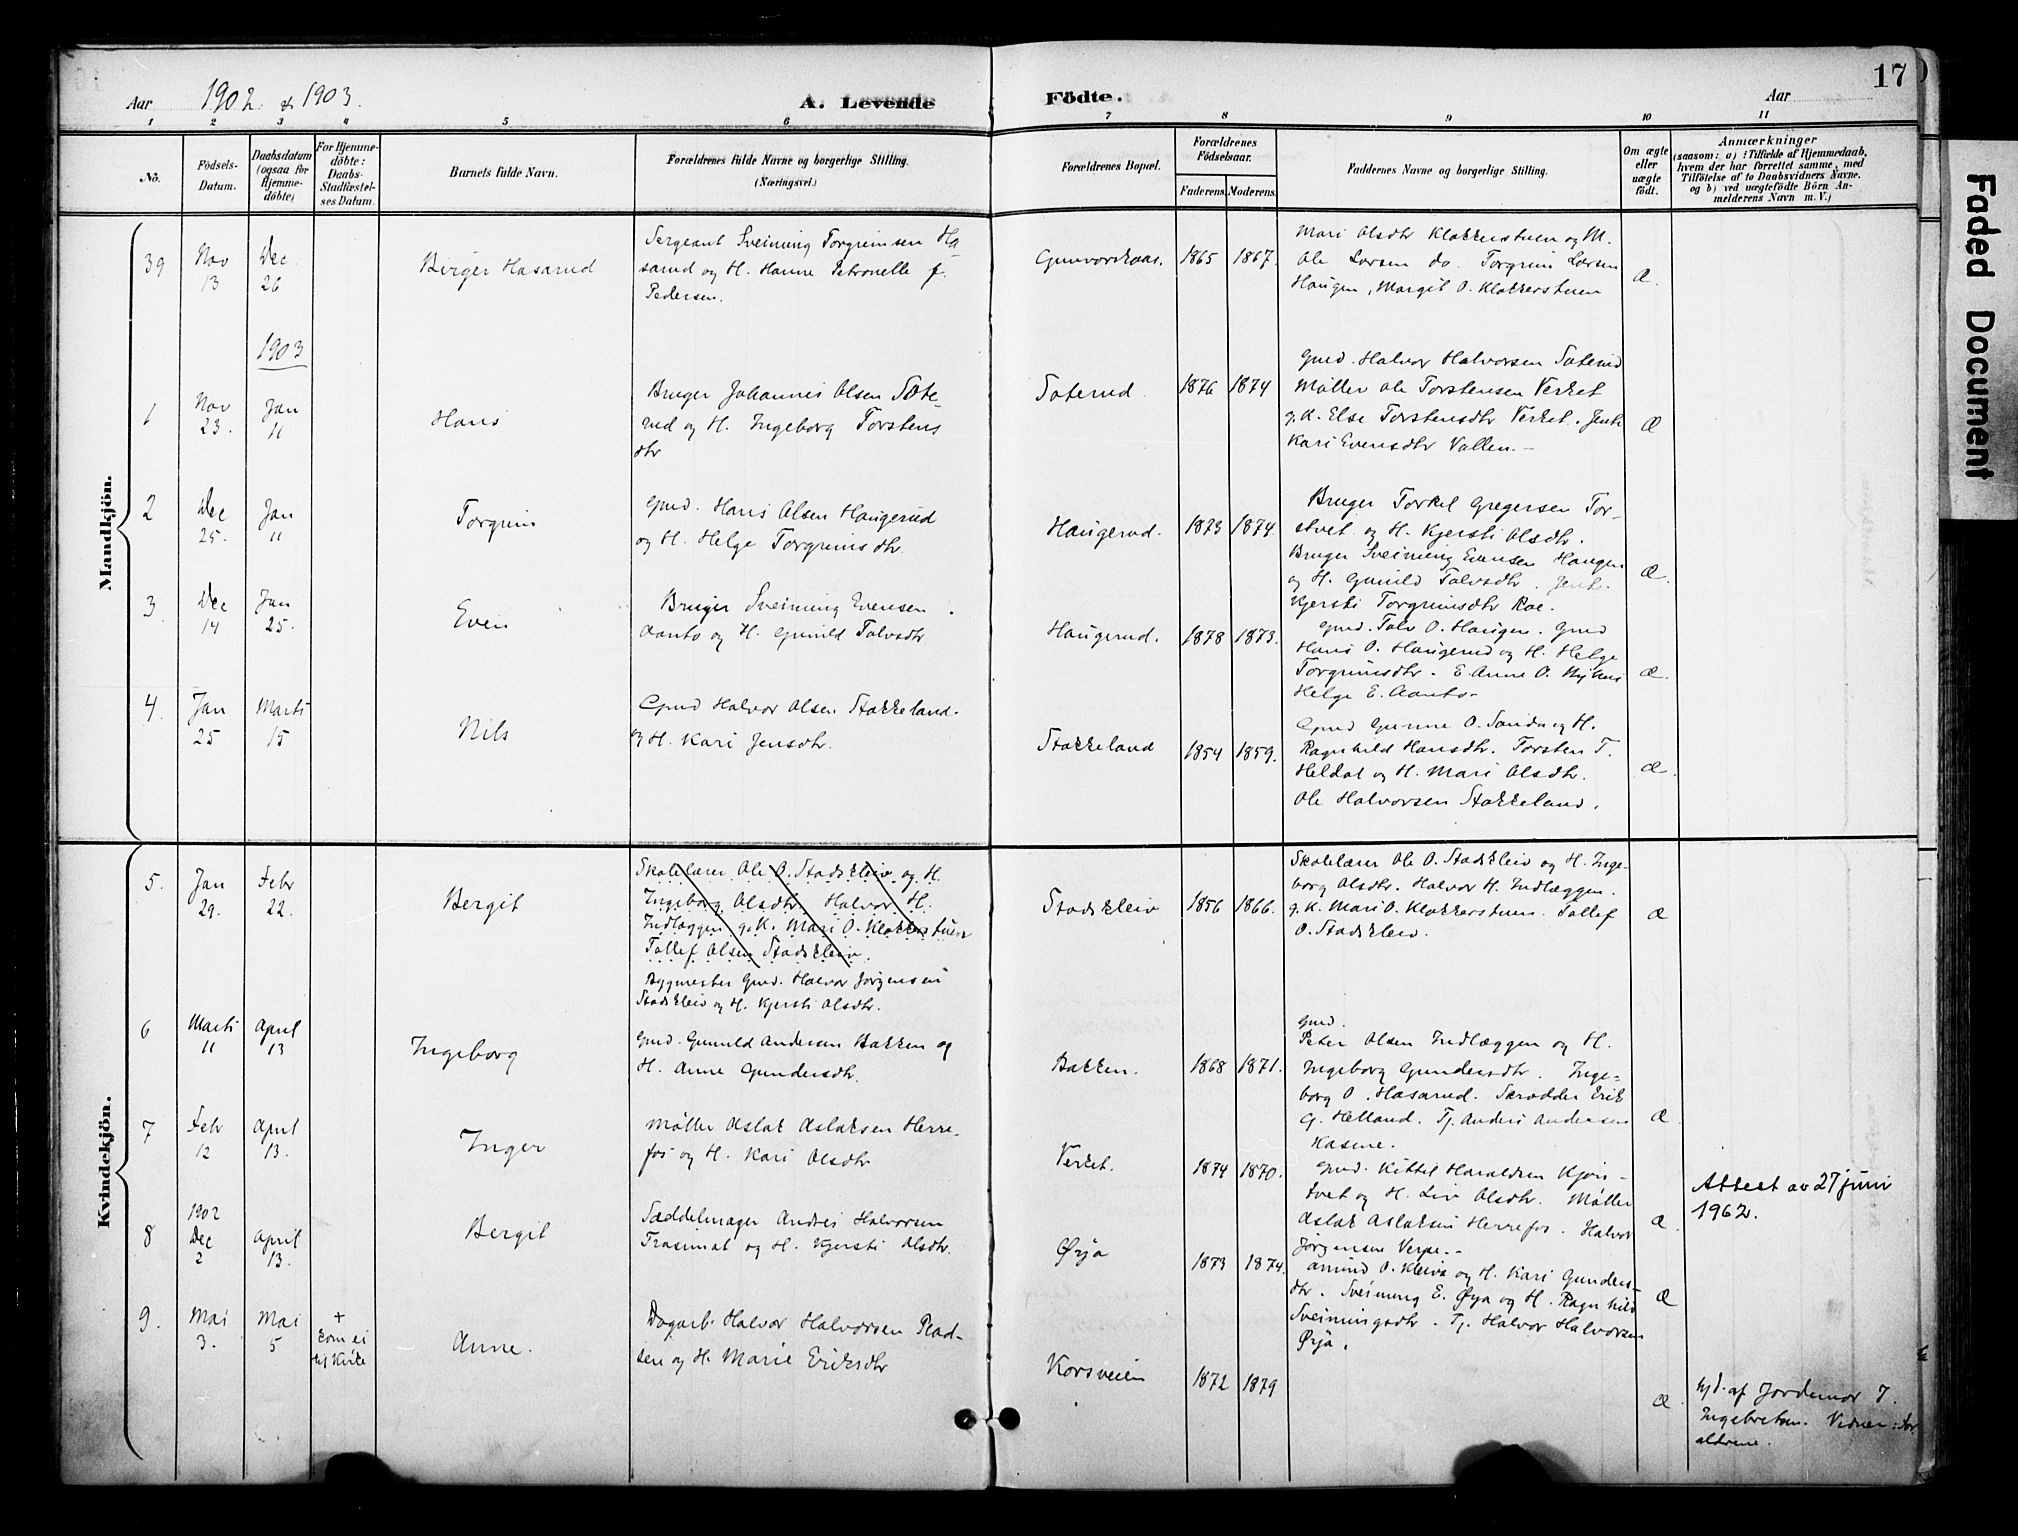 17
Aar 1902 & 1903. A. Levende Födte. Aar
1 2 3 4 5 6 7 8 9 10 11
No. Födsels-Datum. Daabsdatum (ogsaa for Hjemme-döbte) For Hjemme-döbte: Daabs-Stadfæstel-ses Datum. Barnets fulde Navn. Forældrenes fulde Navne og borgerlige Stilling. (Næringsvei.) Forældrenes Bopæl. Forældrenes Födselsaar. Faderens. Moderens. Faddernes Navne og borgerlige Stilling. Om ægte eller uægte födt. Anmærkninger (saasom: a) i Tilfælde af Hjemmedaab, hvem der har forrettet samme, med Tilföielse af to Daabsvidners Navne. og b) ved uægtefödte Börn Anmelderens Navn m. V.)
Mandkjön.
39 Nov 13 Dec 26 Birger Hasarud
Sergeant Sveinung Torgrimsen Ha-
sarud og H. Hanne Petronelle f.
Pedersen.
Gunvorskaas. 1865 1867.
Mari Olsdtr Klokkerstuen og M.
Ole Larsen do. Torgrim Larsen
Haugen, Margit O. Klokkerstuen
Æ.
1903
1 Nov 23. Jan 11 Hans
Bruger Johannes Olsen Sote-
rud og H. Ingeborg Torstens
dtr
Soterud 1876 1874
Gmd. Halvor Halvorsen Soterud
Møller Ole Torstensen Verket
g.K. Else Torstensdtr Verket. Jente
Kari Evensdtr Vallen.-
Æ
2 Dec 25. Jan 11 Torgrim
Gmd. Hans Olsen Haugerud
og H. Helge Torgrimsdtr.
Haugerud. 1873 1874
Bruger Torkel Gregersen Tor-
stvet og H. Kjersti Olsdtr.
Bruger Sveinung Evensen Haugen
og H. Gunild Talvsdtr. Jente
Kjersti Torgrimsdtr Roe.
Æ.
3. Dec 14 Jan 25. Even
Bruger Sveinung Evensen
Aanto og H. Gunild Talvsdtr.
Haugerud. 1878 1873.
Gmd. Talv O. Haugen. Gmd
Hans O. Haugerud og H. Helge
Torgrimsdtr. E Anne O. Nyhus
Helge E. Aanto-
Æ.
4. Jan 25 Marts 15 Nils
Gmd Halvor Olsen Stokkeland.
og H. Kari Jensdtr.
Stokkeland 1854 1859.
Gmd Gunne O. Sanda og H.
Ragnhild Hansdtr. Torsten T.
Heldal og H. Mari Olsdtr.
Ole Halvorsen Stokkeland.
Æ.
Kvindekjön.
5. Jan 29. Febr 22. Bergit
Skolelærer Ole O. Stadskleiv og H.
Ingeborg Olsdtr. Halvor H.
Indlæggen g.K. Mari O. Klokkerstuen
Tollef Olsen Stadskleiv.
Bygmester Gmd. Halvor Jørgensen
Stadskleiv og H. Kjersti Olsdtr.
Stadskleiv 1856 1866.
Skolelærer Ole O. Stadskleiv og H. Inge-
borg Olsdtr. Halvor H. Indlæggen.
g.K. Mari O. Klokkerstuen. Tollef
O. Stadskleiv.
Æ
6 Marts 11 April 13 Ingeborg
Gmd. Gunuld Andersen Bakken og
H. Anne Gundersdtr.
Bakken. 1868 1871.
Gmd.
Peter Olsen Indlæggen og H.
Ingeborg Gundersdtr. Inge-
borg O. Hasarud. Skrædder Erik
G. Helland. Tj. Anders Andersen
Kasine.
Æ
7 Febr 12 April 13. Inger
Møller Aslak Aslaksen Herre-
fos og H. Kari Olsdtr
Verket. 1874 1870.
Gmd. Kittil Haraldsen Kjøn-
tvet og H. Liv Olsdtr. Møller
Aslak Aslaksen Herrefos. Halvor
Jørgensen Verpe.-
Æ
Attest av 27 juni
1962.
8 1902 Dec 2 April 13. Bergit
Saddelmager Andres Halvorsen
Trosimot og H. Kjersti Olsdtr.
Øyja 1873 1874.
Amund O. Kleiva og H. Kari Gunders-
dtr. Sveinung E. Øya og H. Ragnhild
Sveinungsdtr. Tj. Halvor Halvorsen
Øyja.
Æ
9. Mai 3. Mai 5 + Kom ei til Kirke Anne.
Dagarb. Halvor Halvorsen Plad-
sen og H. Marie Eriksdtr
Korsveien 1872 1879
Æ.
hjd. af Jordemor I.
Ingebretsen. Vidner: For
ældrene.
Faded Document